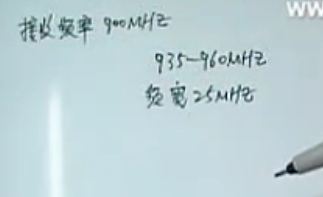 WW
接收频率 900MHZ
935-960MHZ
频宽 25MHZ